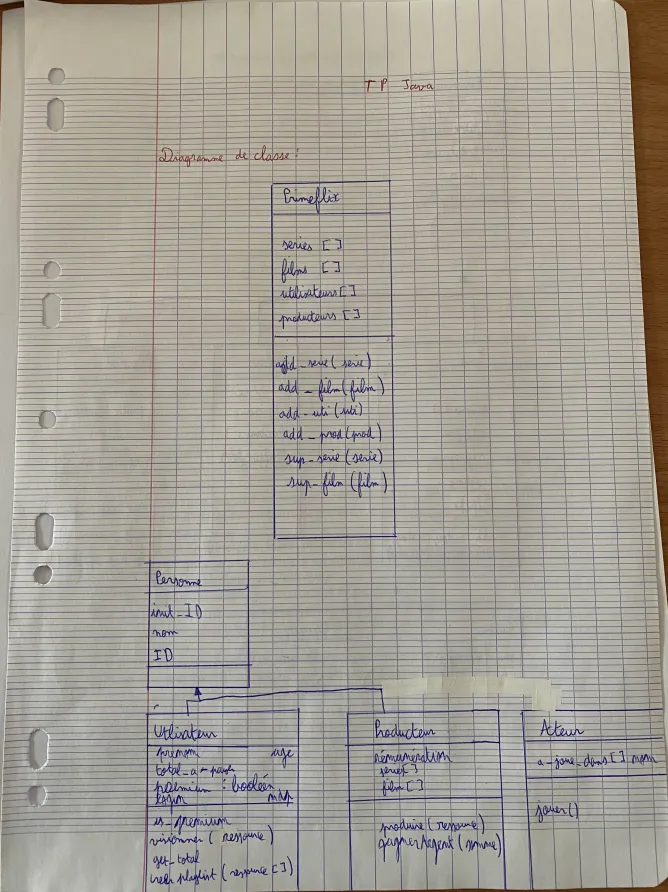 TP Java
Diagramme de classe :
Primeflix
series []
films []
utilisateurs []
producteurs []
add_serie (serie)
add_film (film)
add_uti (uti)
add_prod (prod)
sup_serie (serie)
sup_film (film)
Personne
init_ID
nom
ID
Utilisateur
prenom age
total_a_payer
premium : booléen
login mdp
is_premium
visionner (ressource)
get_total
creer playlist (ressource [])
Producteur
rémunération
series []
film []
produire (ressource)
gagnerArgent (somme)
Acteur
a_joue_dans [] nom
jouer ()